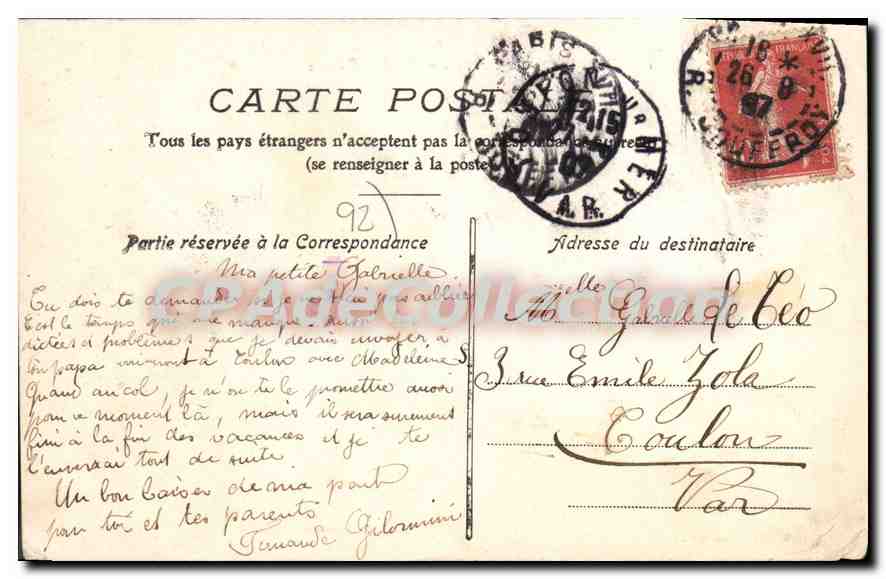 CARTE POSTALE
Tous les pays étrangers n'acceptent pas la correspondance au recto
(se renseigner à la poste)
92)
Partie réservée à la Correspondance
Ma petite Gabrielle.
Tu dois te demander si je ne t'ai pas oubliée
C'est le temps qui me manque.
dictées et problèmes que je devais envoyer à
ton papa viendront à Toulon avec Madeleine S
Quand au col, je n'ose te le promettre aussi
pour ce moment là, mais il sera surement
fini à la fin des vacances et je te
l'enverrai tout de suite
Un bon baiser de ma part
pour toi et tes parents
Fernande
Adresse du destinataire
Melle Gabrielle Le Téo
3 rue Emile Zola
Toulon
Var
PARIS XVII
R. JOUFFROY
16 *
26 8
07
12 15
VAR
CPAdeCollection